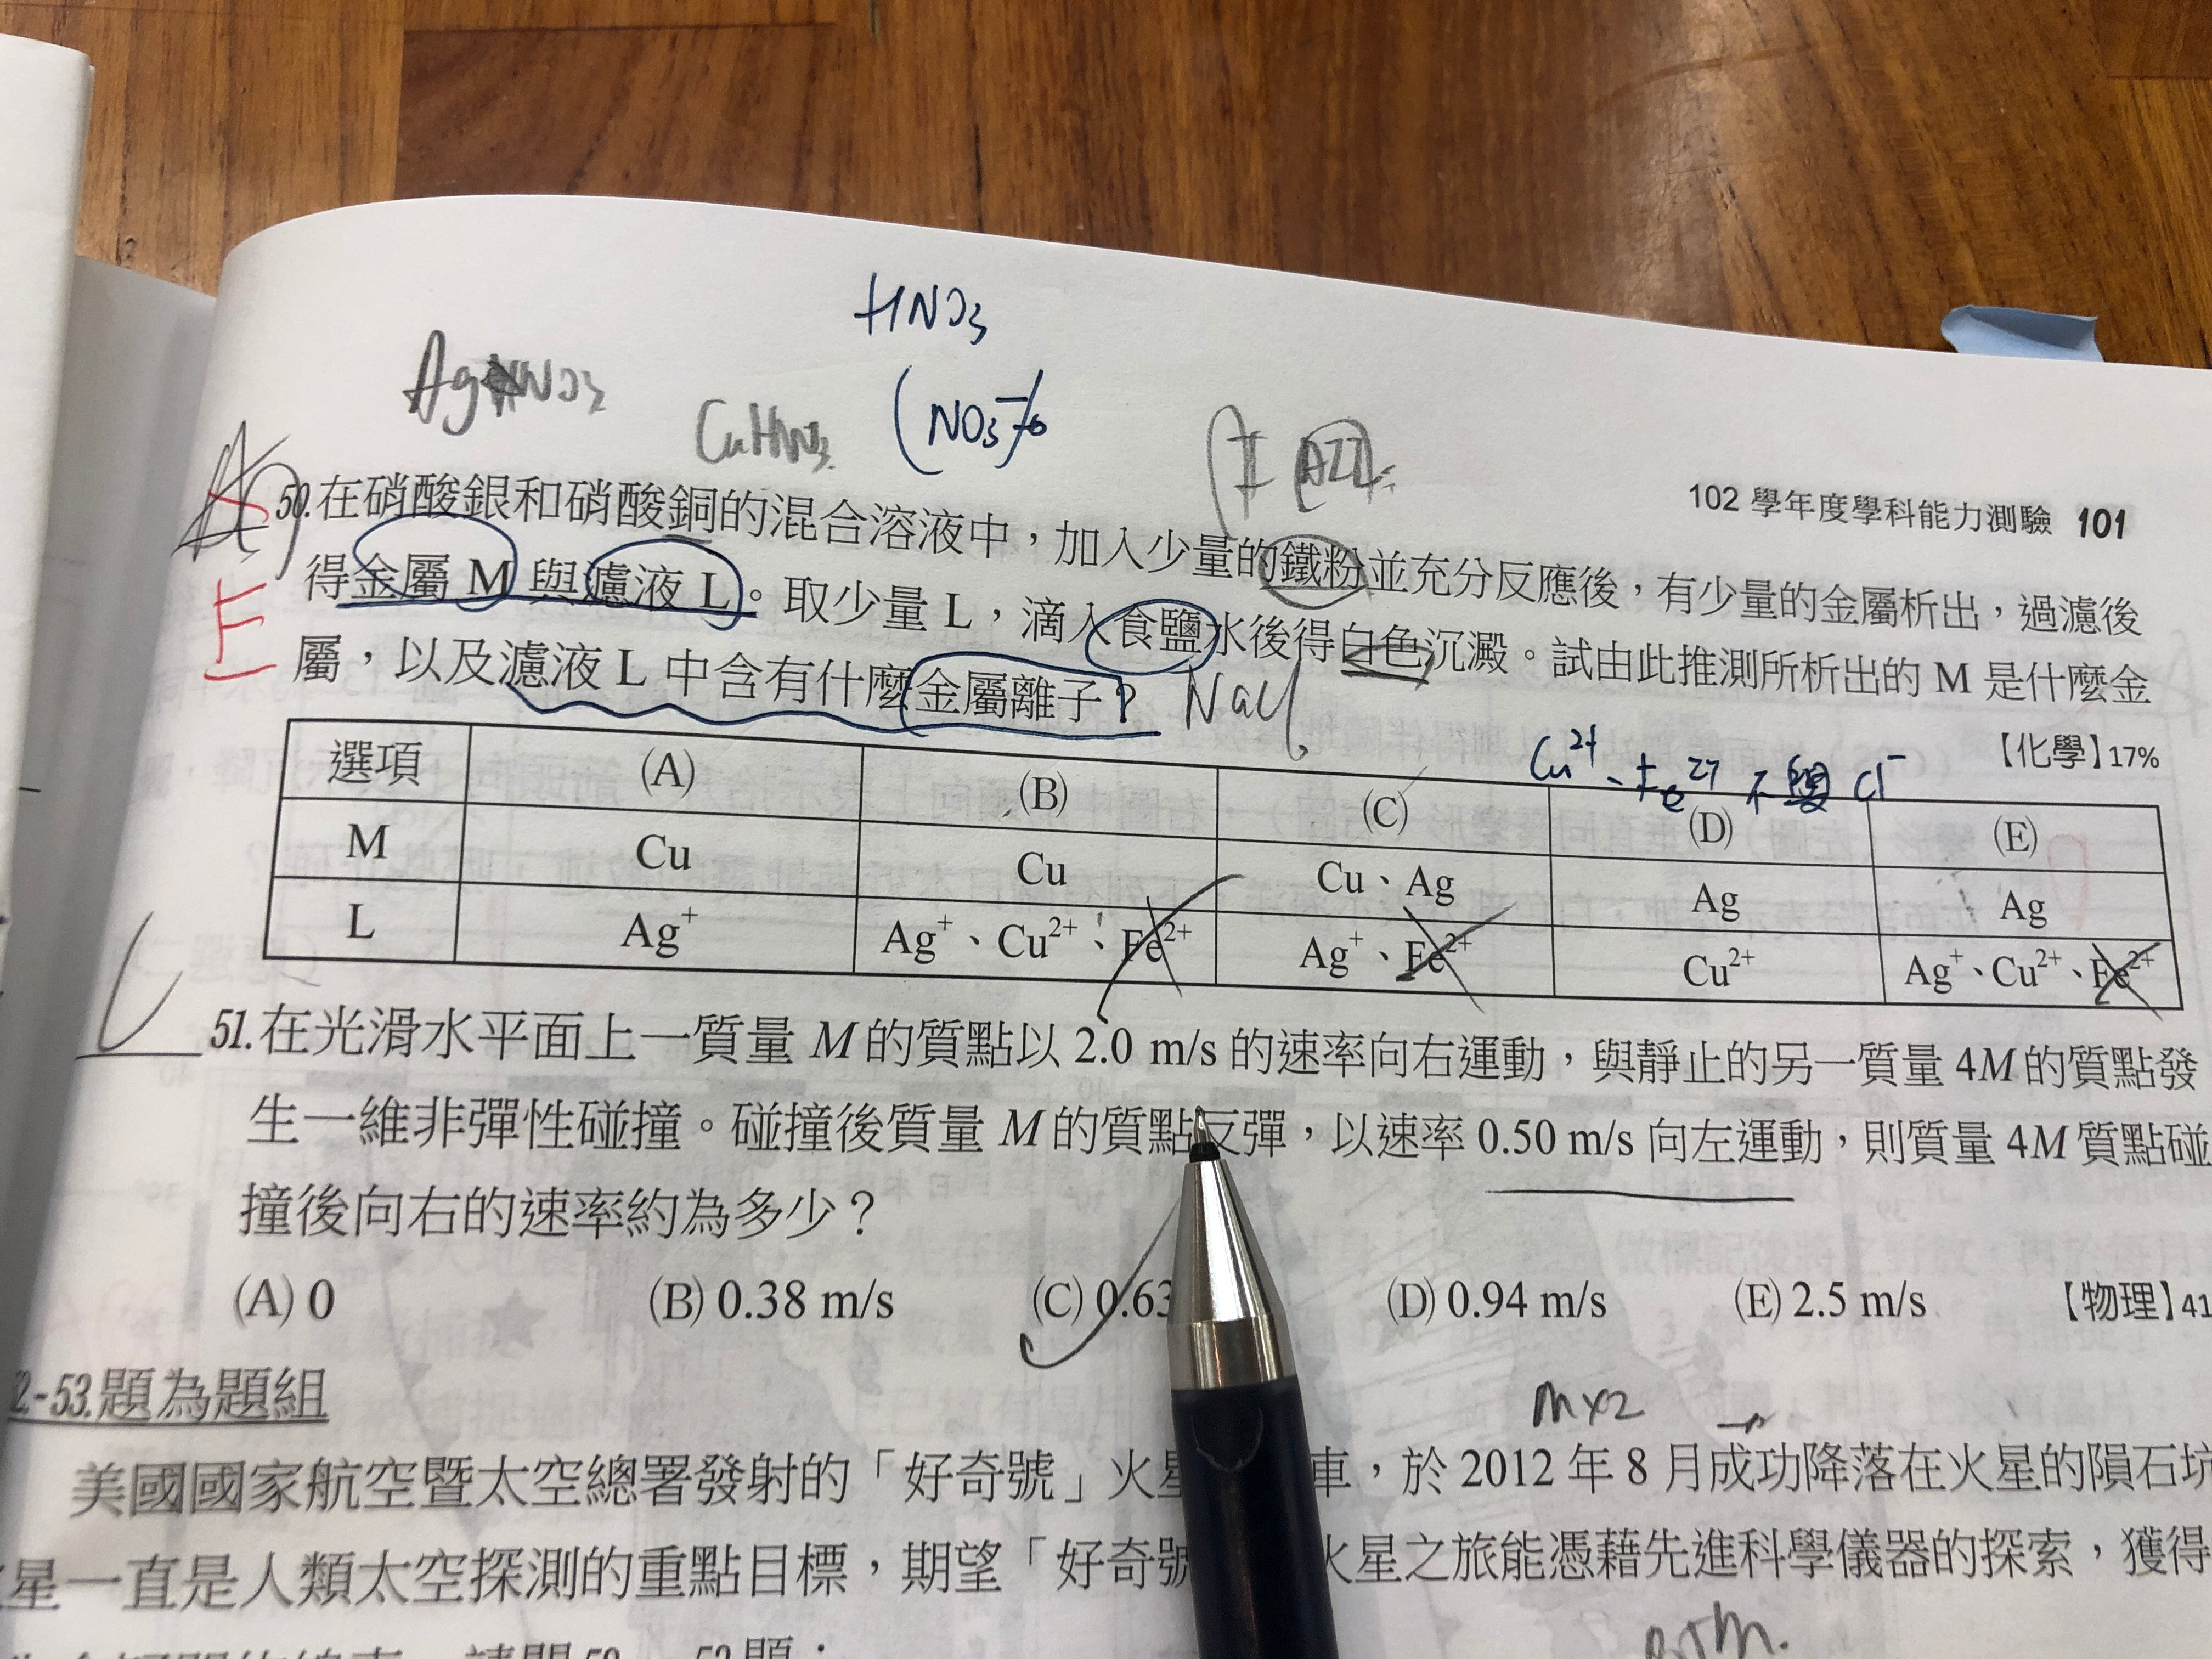 HNO3
AgNO3
CuHNO3
(NO3⁻)
102 學年度學科能力測驗 101
50.在硝酸銀和硝酸銅的混合溶液中，加入少量的鐵粉並充分反應後，有少量的金屬析出，過濾後
得金屬 M 與濾液 L。取少量 L，滴入食鹽水後得白色沉澱。試由此推測所析出的 M 是什麼金
E
屬，以及濾液 L 中含有什麼金屬離子？
NaCl
【化學】17%
Cu²⁺、Fe²⁺ 不與 Cl⁻
選項 (A) (B) (C) (D) (E)
M Cu Cu Cu、Ag Ag Ag
L Ag⁺ Ag⁺、Cu²⁺、Fe²⁺ Ag⁺、Fe²⁺ Cu²⁺ Ag⁺、Cu²⁺、Fe²⁺
51.在光滑水平面上一質量 M 的質點以 2.0 m/s 的速率向右運動，與靜止的另一質量 4M 的質點發
生一維非彈性碰撞。碰撞後質量 M 的質點反彈，以速率 0.50 m/s 向左運動，則質量 4M 質點碰
撞後向右的速率約為多少？
(A) 0 (B) 0.38 m/s (C) 0.63 (D) 0.94 m/s (E) 2.5 m/s 【物理】41
-53.題為題組
M×2
美國國家航空暨太空總署發射的「好奇號」火星 車，於 2012 年 8 月成功降落在火星的隕石坑
星一直是人類太空探測的重點目標，期望「好奇號 火星之旅能憑藉先進科學儀器的探索，獲得